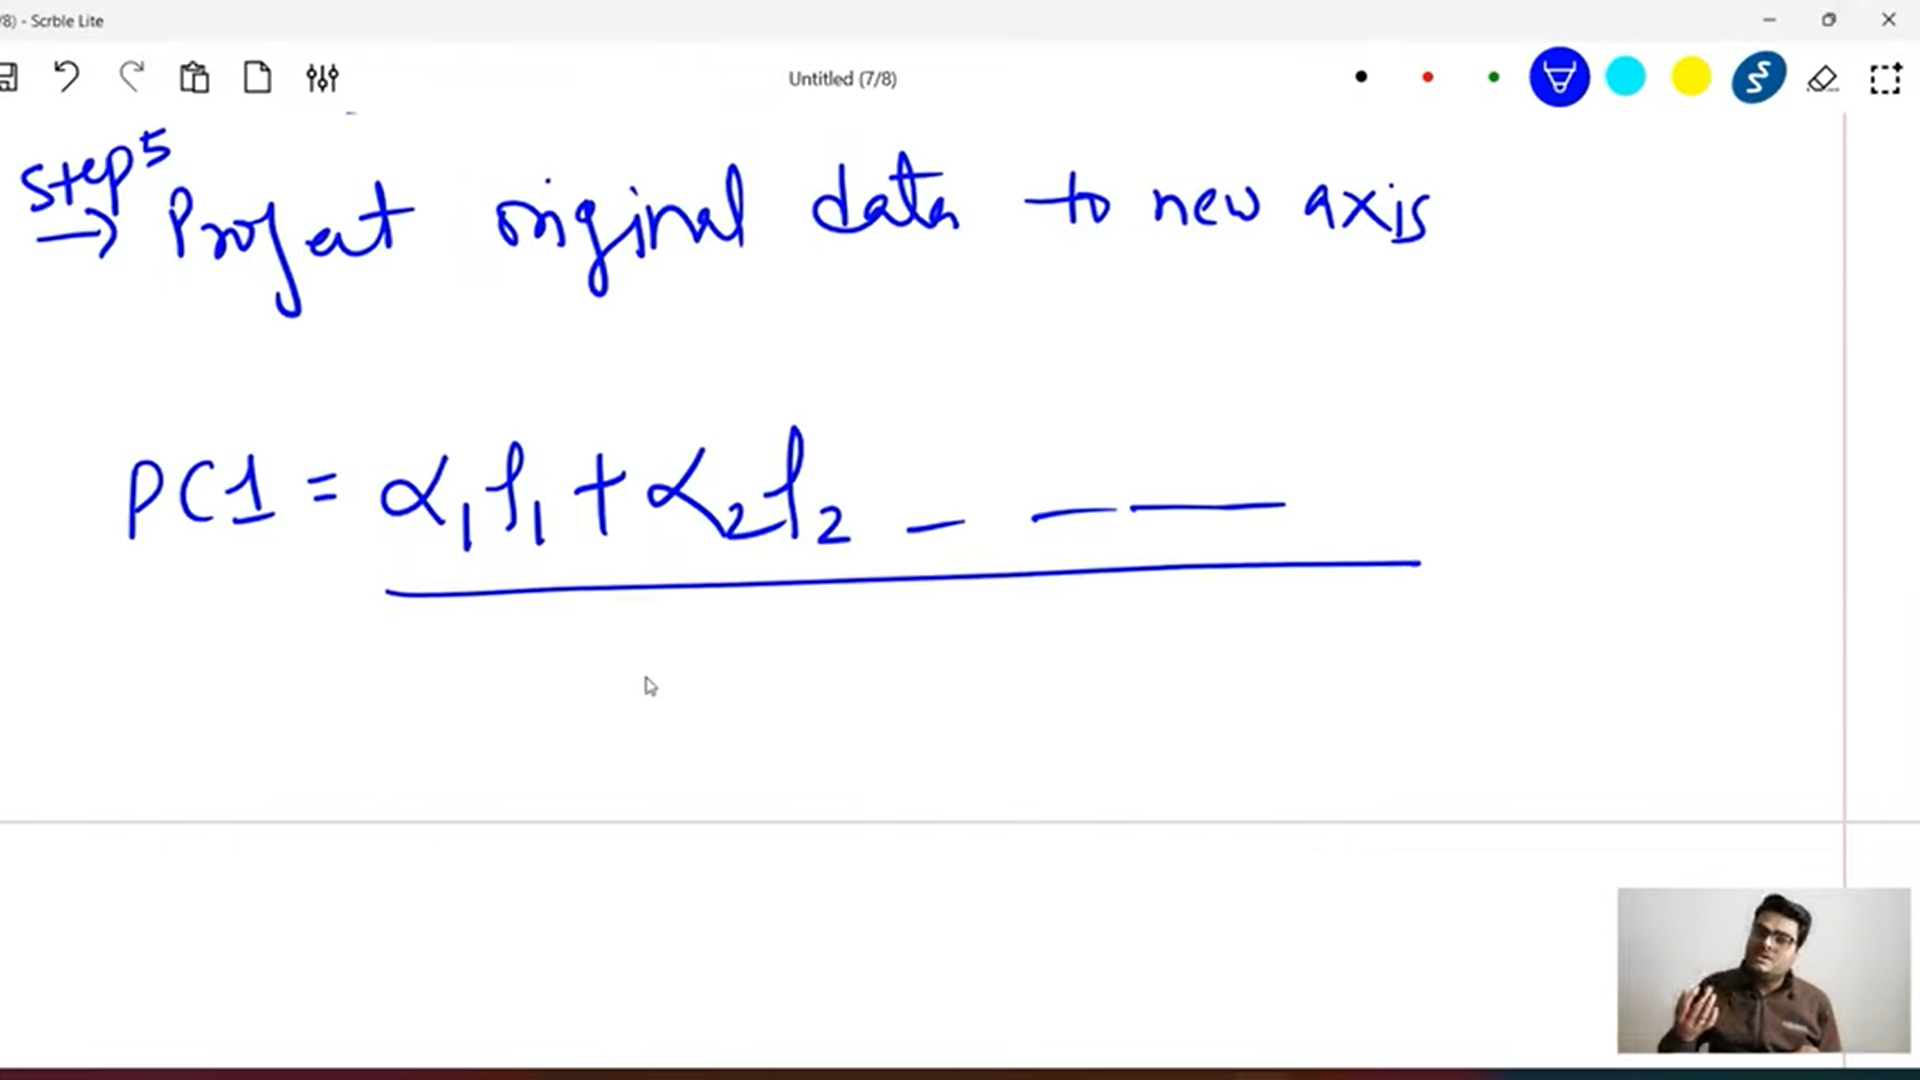 /8) - Scrble Lite
Untitled (7/8)
Step 5
→ Project original data to new axis
PC1 = α₁f₁ + α₂f₂ _ _ __